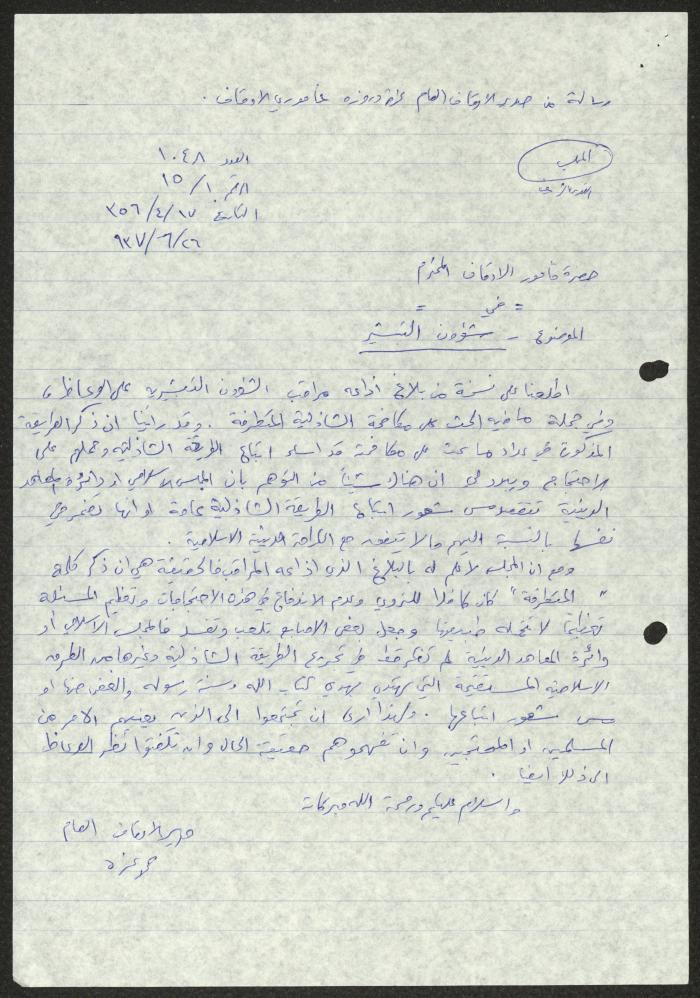 رسالة من مدير الاوقاف العام عزة دروزه لمأموري الاوقاف .
العدد ١٠٤٨
الرقم ١٥/١
التاريخ ٣٥٦/٤/١٧
٩٣٧/٦/٢٦
حضرة مأمور الاوقاف المحترم
= في =
الموضوع - شؤون التبشير
اطلعنا على نسخة من بلاغ اذاعه مراقب الشؤون التبشيرية على الوعاظ
وفي جملة ما فيه الحث على مكافحة الشاذلية المتطرفة . وقد رأينا ان ذكر الطريقة
المذكورة في عداد ما يحث على مكافحته قد اساء اتباع الطريقة الشاذلية وحملهم على
الاحتجاج ويبدو لي ان هناك شيئاً من التوهم بان المجلس الاسلامي او دائرة المعاهد
الدينية تقصد مس شعور اتباع الطريقة الشاذلية عامة او انها تضمر في
نفسها بالنسبة اليهم ما لا يتفق مع الكرامة الدينية الاسلامية .
ومع ان المجلس لا علم له بالبلاغ الذي اذاعه المراقب فالحقيقة هي ان ذكر كلمة
" المتطرفة " كان كافلا للتروي وعدم الاندفاع في هذه الاحتجاجات وتعظيم المسئلة
تعظيماً لا تتحمله طبيعتها وجعل بعض الاصابع تلعب وتفسد فالمجلس الاسلامي او
دائرة المعاهد الدينية لم تفكر قط في تجريح الطريقة الشاذلية وغيرها من الطرق
الاسلامية المستقيمة التي تهتدي بهدي كتاب الله وسنة رسوله والغض منها او
مس شعور اتباعها . ولهذا ارى ان تجتمعوا الى الذين يعنيهم الامر من
المسلمين او المحتجين وان تفهموهم حقيقة الحال وان تلفتوا نظر الوعاظ
الى ذلك ايضا .
والسلام عليكم ورحمة الله وبركاته
مدير الاوقاف العام
عزة